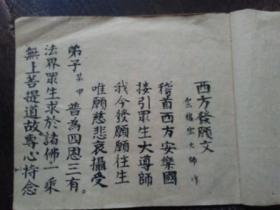 西方發願文
雲棲宏大師 作
稽首西方安樂國
接引眾生大導師
我今發願願往生
唯願慈悲哀攝受
弟子某甲普為四恩三有。
法界眾生求於諸佛一乘
無上菩提道故專心持念